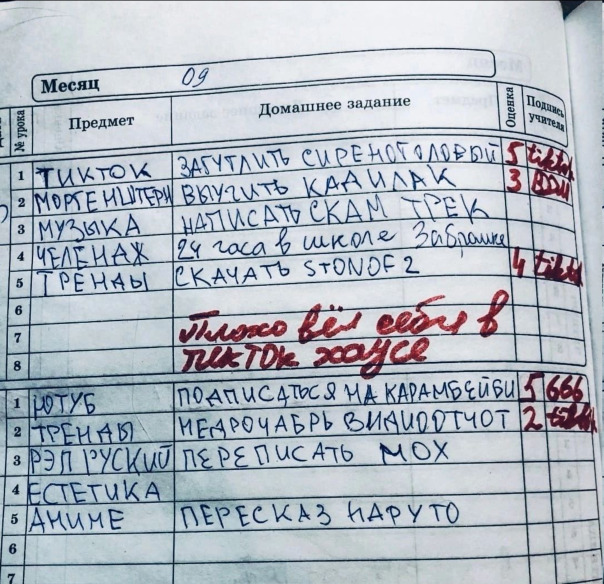 Месяц 09
№ урока Предмет Домашнее задание Оценка Подпись учителя
1 ТИКТОК ЗАГУГЛИТЬ СИРЕНОГОЛОВЫЙ 5 tiktok
2 МОРГЕНШТЕРН ВЫУЧИТЬ КАДИЛАК 3
3 МУЗЫКА НАПИСАТЬ СКАМ ТРЕК
4 ЧЕЛЕНАЖ 24 часа в школе Заброшке
5 ТРЕНДЫ СКАЧАТЬ STONOF 2 4 tiktok
6
7 Плохо вёл себя в
8 тикток хаусе
1 ЮТУБ ПОДПИСАТЬСЯ НА КАРАМБЕЙБИ 5 666
2 ТРЕНДЫ НЕДРОЧАБРЬ ВИДИООТЧОТ 2 tiktok
3 РЭП РУСКИЙ ПЕРЕПИСАТЬ МОХ
4 ЕСТЕТИКА
5 АНИМЕ ПЕРЕСКАЗ НАРУТО
6
7